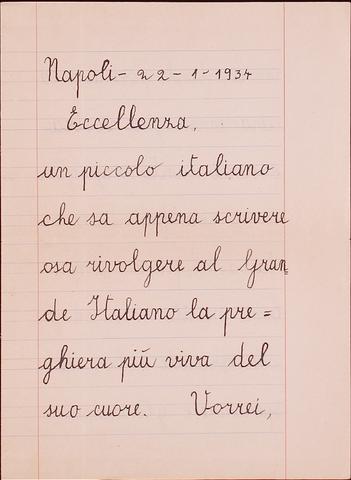 Napoli - 22 - 1 - 1934
Eccellenza,
un piccolo italiano
che sa appena scrivere
osa rivolgere al Gran=
de Italiano la pre=
ghiera più viva del
suo cuore. Vorrei,